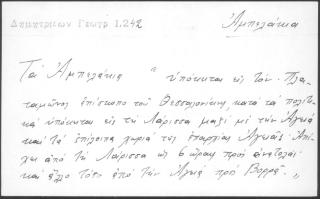 Δημητριέων Γεωγρ 1.242
Ἀμπελάκια
Τὰ Ἀμπελάκια " ὑπόκεινται εἰς τὸν Πλα-
ταμῶνος ἐπίσκοπο τοῦ Θεσσαλονίκης, κατὰ τὰ πολιτι-
κὰ ὑπόκεινται εἰς τὴ Λάρισσα μαζὶ μὲ τὴν Ἀγιὰ
καὶ τὰ ἐπίλοιπα χωριὰ τῆς ἐπαρχίας Ἀγιᾶς. Ἀπέ-
χει ἀπὸ τὴ Λάρισσα ὡς 6 ὥραις πρὸς ἀνατολὰς
καὶ ἄλλο τόσο ἀπὸ τὴν Ἀγιὰ πρὸς Βορρᾶ. "